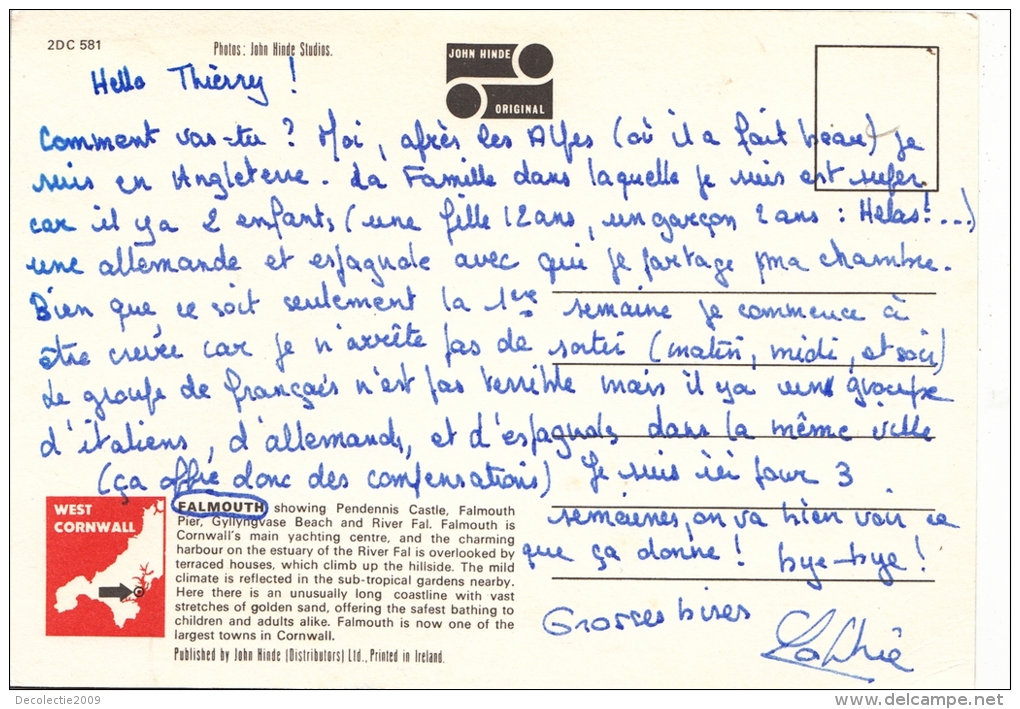 2DC 581
Photos: John Hinde Studios.
JOHN HINDE
ORIGINAL
Hello Thierry !
Comment vas-tu ? Moi, après les Alpes (où il a fait beau) je
suis en Angleterre. La Famille dans laquelle je suis est super
car il y a 2 enfants (une fille 12 ans, un garçon 2 ans : Hélas! ...)
une allemande et espagnole avec qui je partage ma chambre.
Bien que ce soit seulement la 1ère semaine je commence à
être crevée car je n'arrête pas de sortir (matin, midi, et soir)
Le groupe de français n'est pas terrible mais il y a un groupe
d'italiens, d'allemands, et d'espagnols dans la même ville
(ça offre donc des compensations) Je suis ici pour 3
semaines, on va bien voir ce
que ça donne ! bye-bye !
Grosses bises
WEST
CORNWALL
FALMOUTH showing Pendennis Castle, Falmouth
Pier, Gyllyngvase Beach and River Fal. Falmouth is
Cornwall's main yachting centre, and the charming
harbour on the estuary of the River Fal is overlooked by
terraced houses, which climb up the hillside. The mild
climate is reflected in the sub-tropical gardens nearby.
Here there is an unusually long coastline with vast
stretches of golden sand, offering the safest bathing to
children and adults alike. Falmouth is now one of the
largest towns in Cornwall.
Published by John Hinde (Distributors) Ltd., Printed in Ireland.
Decolectie2009
http://www.delcampe.net